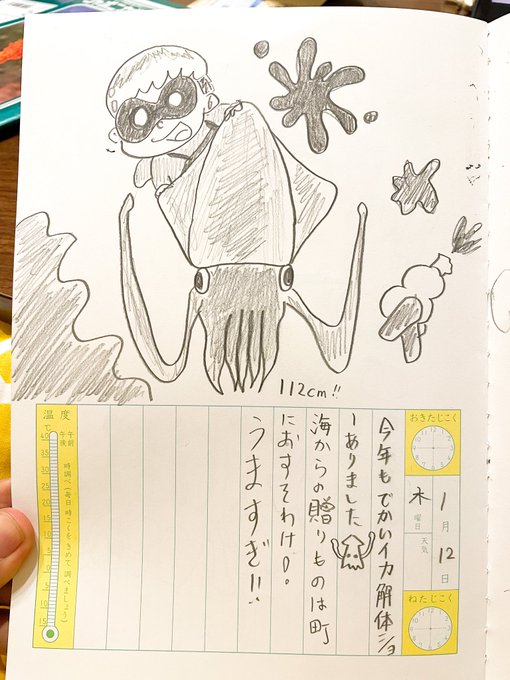 112cm!!
おきたじこく
1月12日
木曜日
天気
ねたじこく
今年もでかいイカ解体ショ
ーありました
海からの贈りものは町
におすそわけ。
うますぎ!!
温度
℃
午前
午後
時調べ(毎日 時こくをきめて調べましょう)
40
35
30
25
20
15
10
5
0
5
10
15